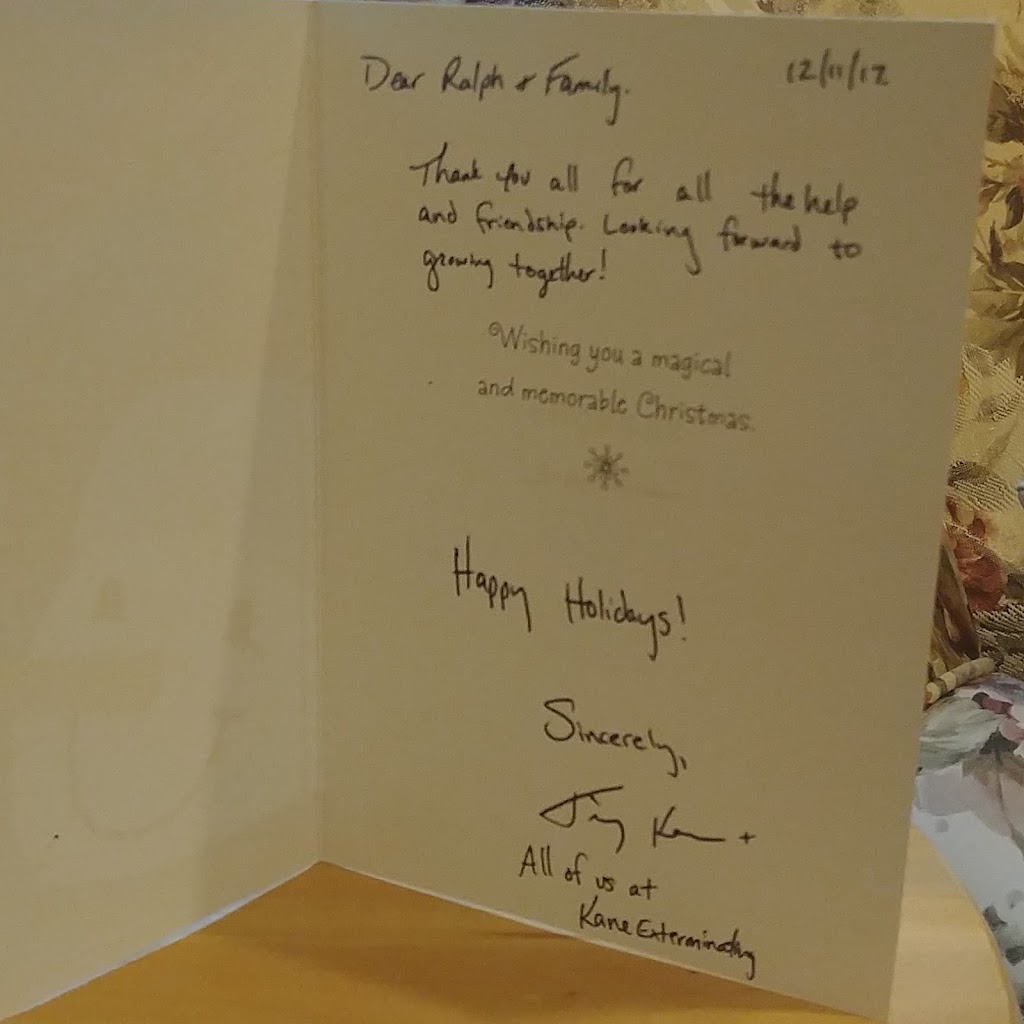 12/11/12
Dear Ralph + Family.
Thank you all for all the help
and friendship. Looking forward to
growing together!
Wishing you a magical
and memorable Christmas.
Happy Holidays!
Sincerely,
Kane +
All of us at
Kane Exterminating